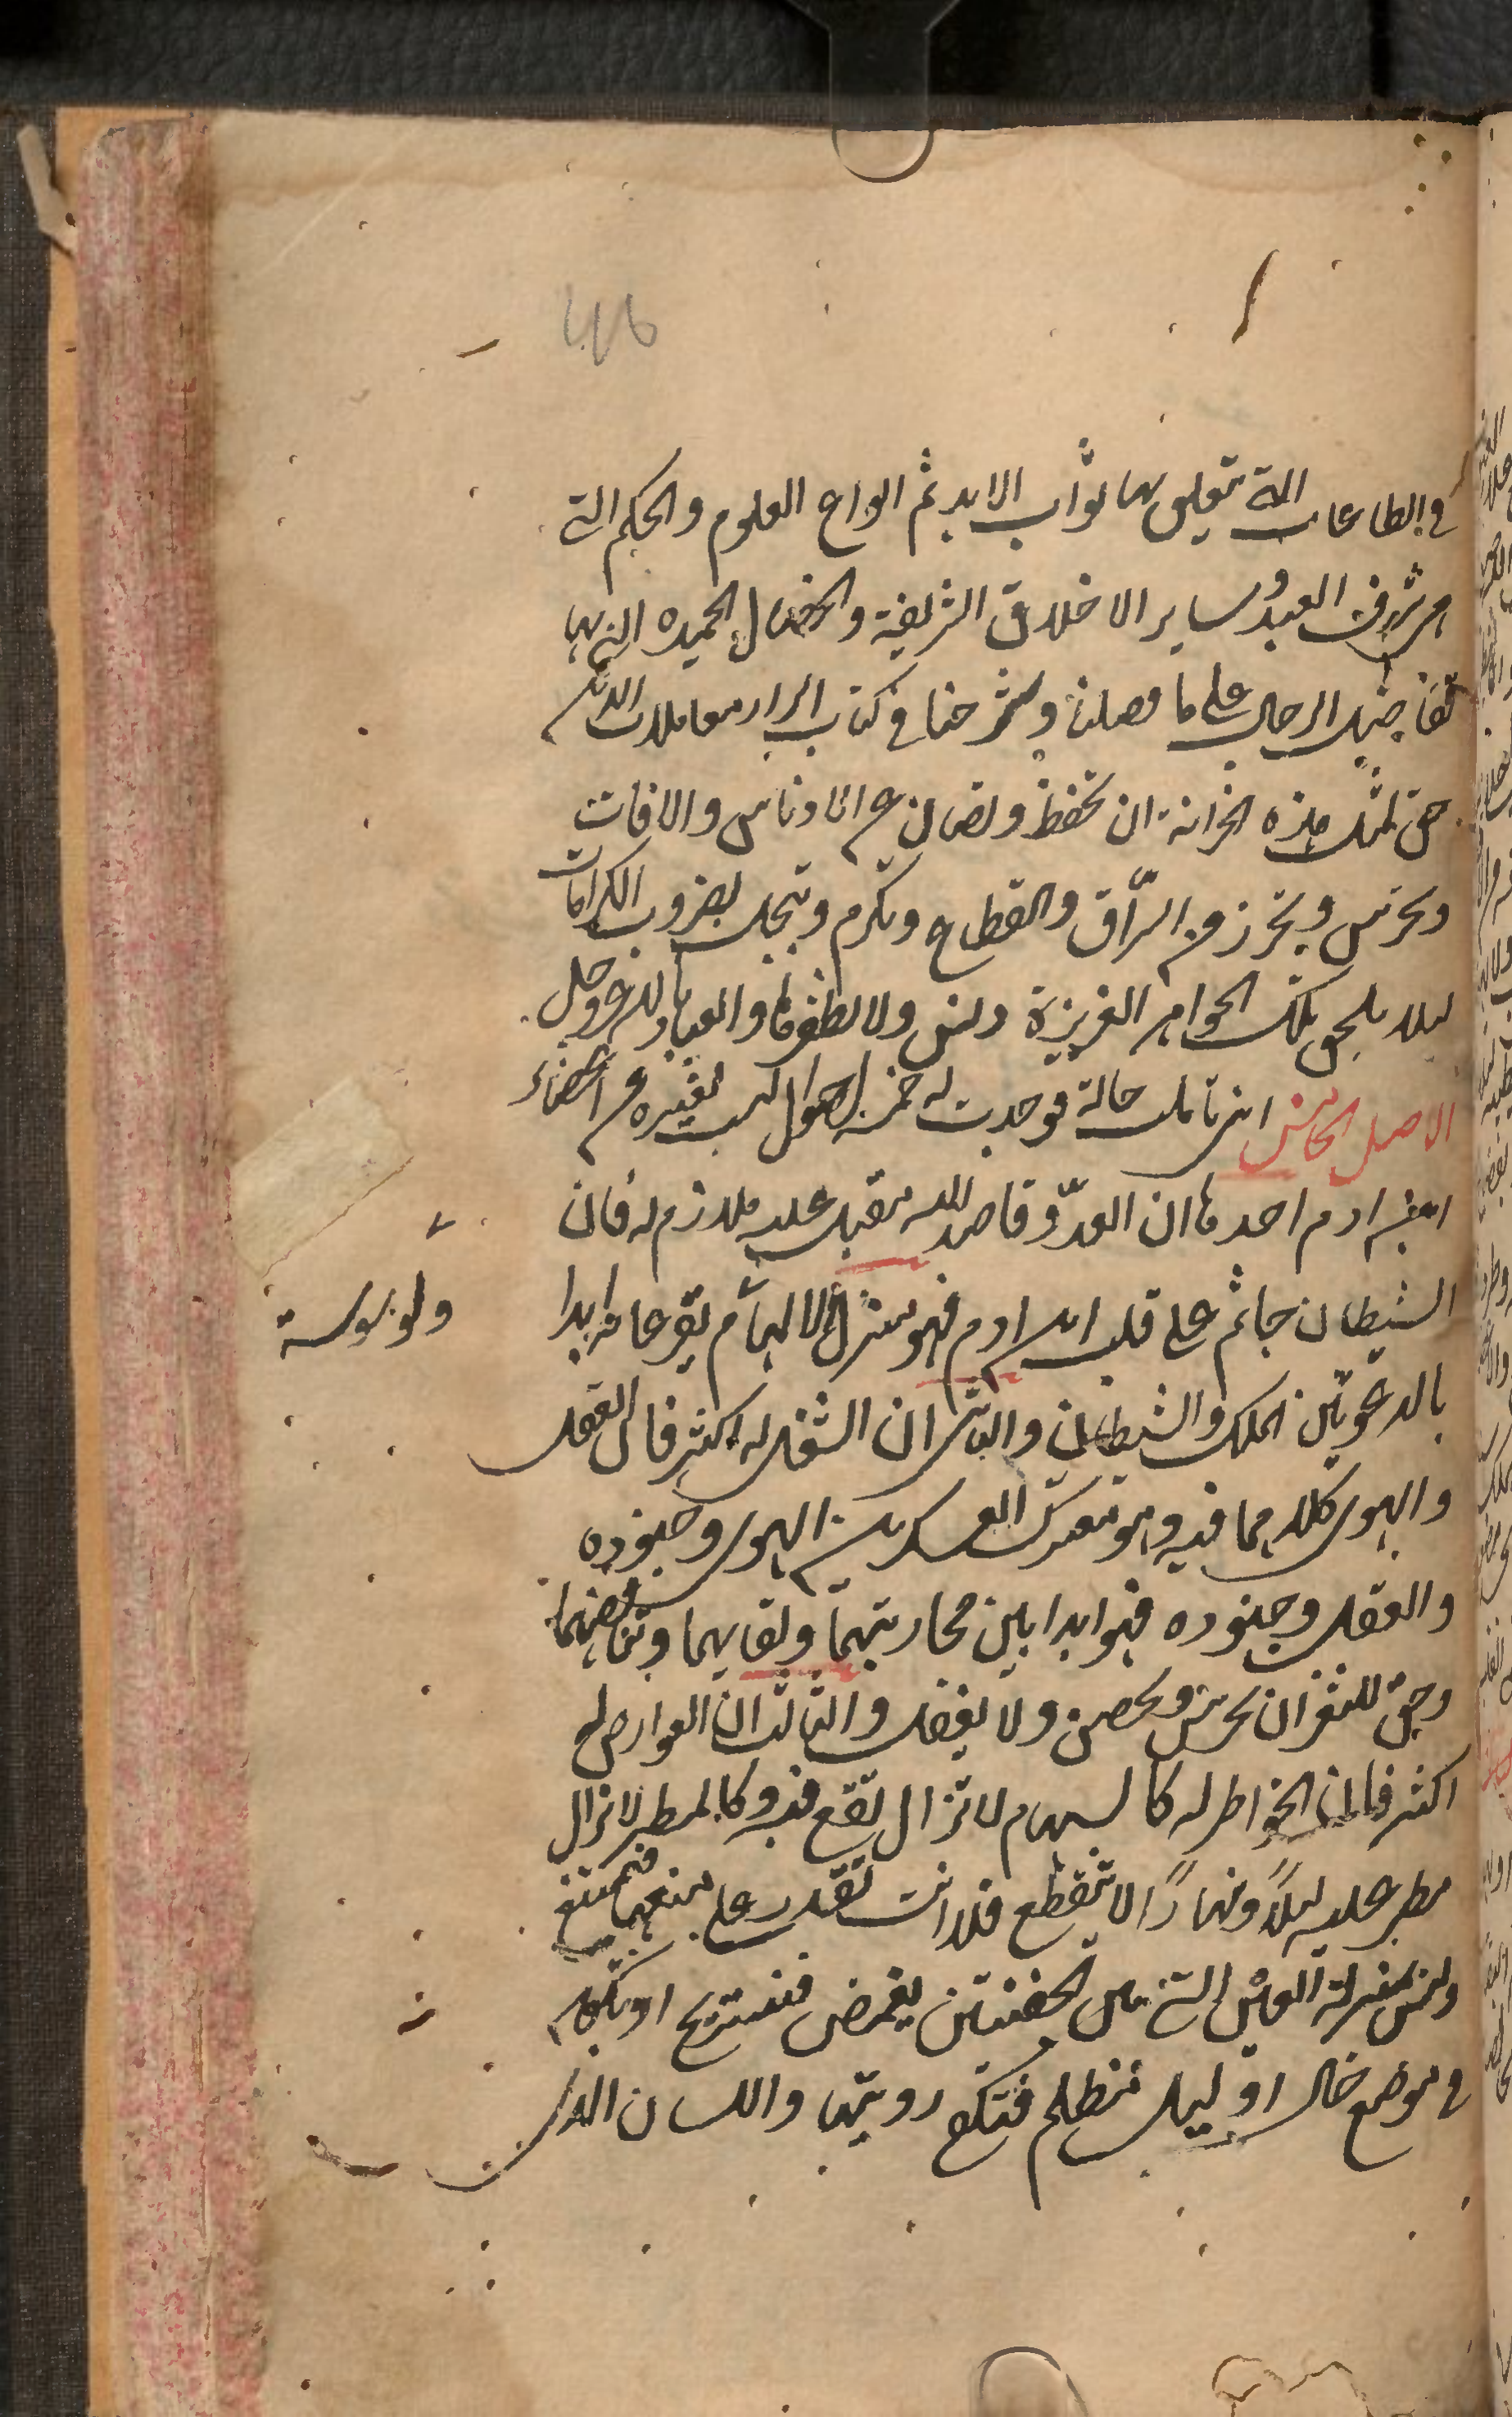 416
في الطاعات التي تتعلق بها ثواب الابد ثم انواع العلوم والحكم التي
هي شرف العبد وساير الاخلاق الشريفة والخصال الحميدة التي بها
تفاضل الرجال على ما فصلنا وشرحنا في كتاب اسرار معاملات الدين
حق لمثل هذه الخزانة ان تحفظ وتصان عن الادناس والافات
وتحرس وتحرز من السرّاق والقطاع وتكرم وتبجل بضروب الكرامات
ليلا يلحق تلك الجواهر العزيزة دنس ولا يظفر بها والعياذ بالله عز وجل
الاصل الخامس اني تاملت حاله فوجدت له خمسة احوال ليست لغيره من اعضاء
ابن ادم احدها ان العدوّ قاصد اليه مقبل عليه ملازم له فان
الشيطان جاثم على قلب ابن ادم فهو منزل الالهام يقرعانه ابدا
ولوسوسة
بالدعوتين الملك والشيطان والثاني ان الشغل له اكثر فان العقل
والهوى كلاهما فيه وهو معترك العسكرين الهوى وجنوده
والعقل وجنوده فهو ابدا بين محاربتهما ولقايهما وتناقضهما
وحق للثغر ان يحرس ويحصن ولا يغفل والثالث ان العوارض له
اكثر فان الخواطر له كالسهام لا تزال تقع فيه وكالمطر لا تزال
مطر عليه ليلاً ونهارًا لا تنقطع فلا انت تقدر على منعها فتمتنع
وليس بمنزلة العين التي بين الجفنتين يغمض فتستريح او تكون
في موضع خال او ليل مظلم فتكفى رويتها واللسان الذي